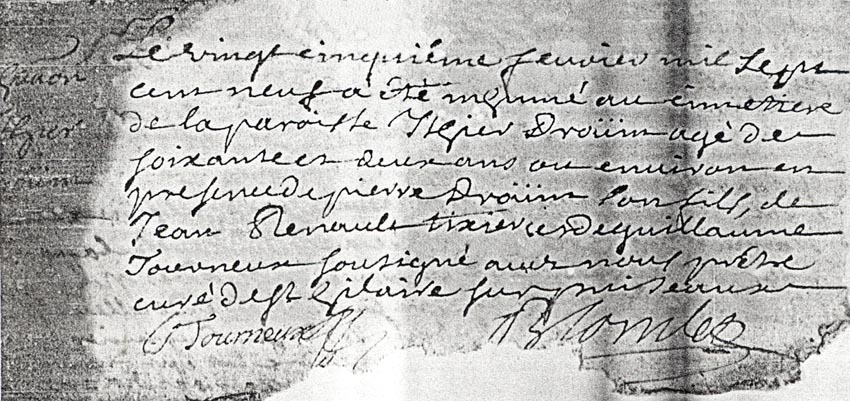 Le vingt cinquiéme feuvrier mil sept
cent neuf a été inhumé au cimetiere
de la paroisse Ithier Droüin agé de
soixante et deux ans ou environ en
presence de pierre Droüin son fils, de
Jean Renault tixier et de guillaume
Tourneux soussigné avec nous prêtre
curé de st hilaire sur
G Tourneux